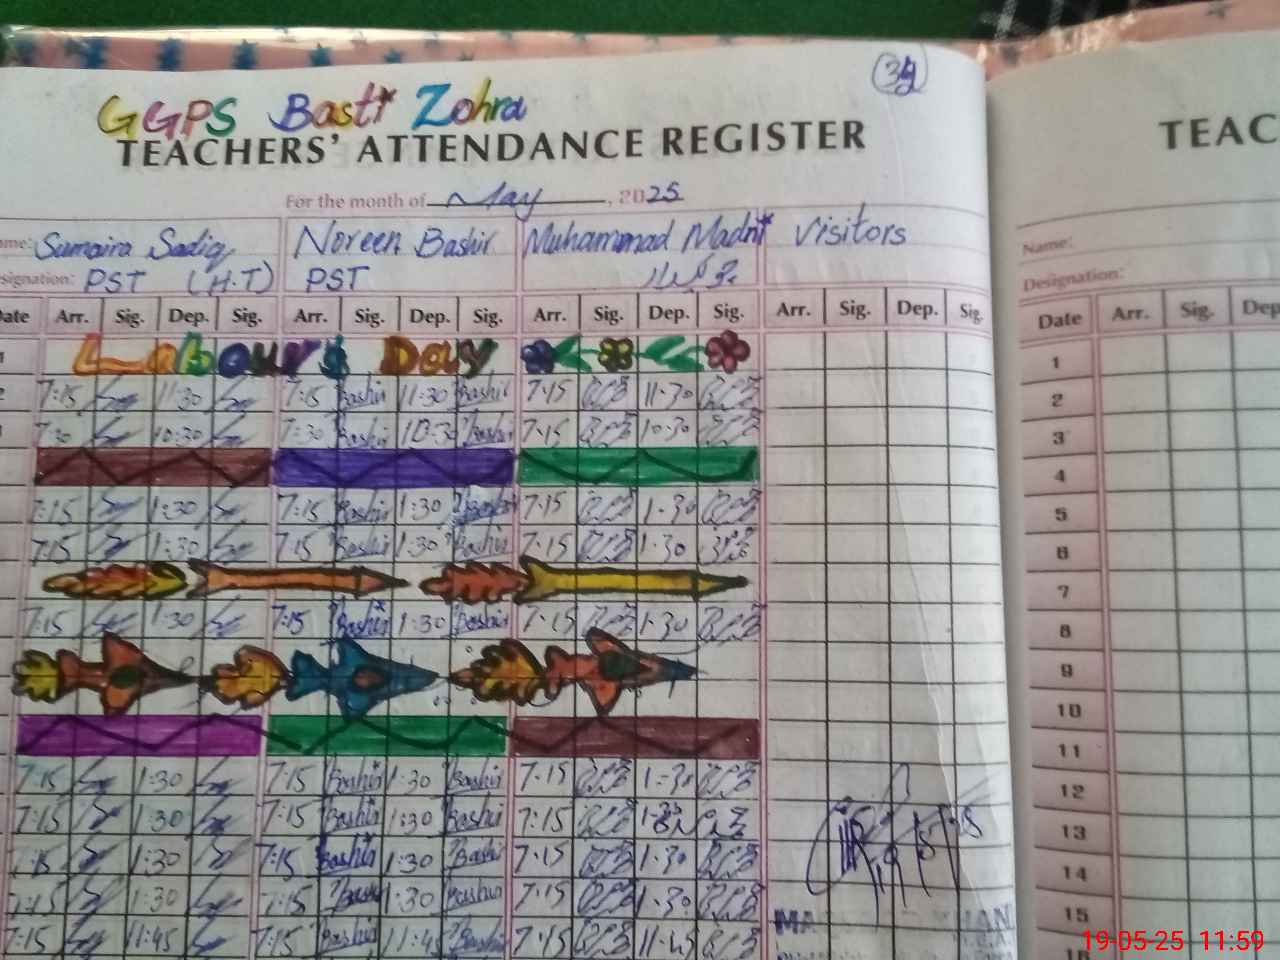 39
GGPS Basti Zohra
TEACHERS' ATTENDANCE REGISTER
For the month of May, 2025
Sumaira Sadiq Noreen Bashir Muhammad Madni Visitors
PST (H.T) PST
Arr. Sig. Dep. Sig. Arr. Sig. Dep. Sig. Arr. Sig. Dep. Sig. Arr. Sig. Dep. Sig.
1 Labour's Day
2 7:15 11:30 7:15 Bashir 11:30 Bashir 7.15 11.30
7:30 10:30 7:30 Bashir 10:30 Bashir 7.15 10.30
7:15 1:30 7:15 Bashir 1:30 Bashir 7.15 1.30
7:15 1:30 7:15 Bashir 1:30 Bashir 7.15 1.30
7:15 1:30 7:15 Bashir 1:30 Bashir 7.15 1.30
7:15 1:30 7:15 Bashir 1:30 Bashir 7.15 1.30
7:15 1:30 7:15 Bashir 1:30 Bashir 7.15
7:15 1:30 7:15 Bashir 1:30 Bashir 7.15 1.30
7:15 1:30 7:15 Bashir 1:30 Bashir 7.15 1.30
7:15 11:45 7:15 Bashir 11:45 Bashir 7.15 11.45
TEAC
Name:
Designation:
Date Arr. Sig. Dep
1
2
3
4
5
6
7
8
9
10
11
12
13
14
15
16
19-05-25 11:59